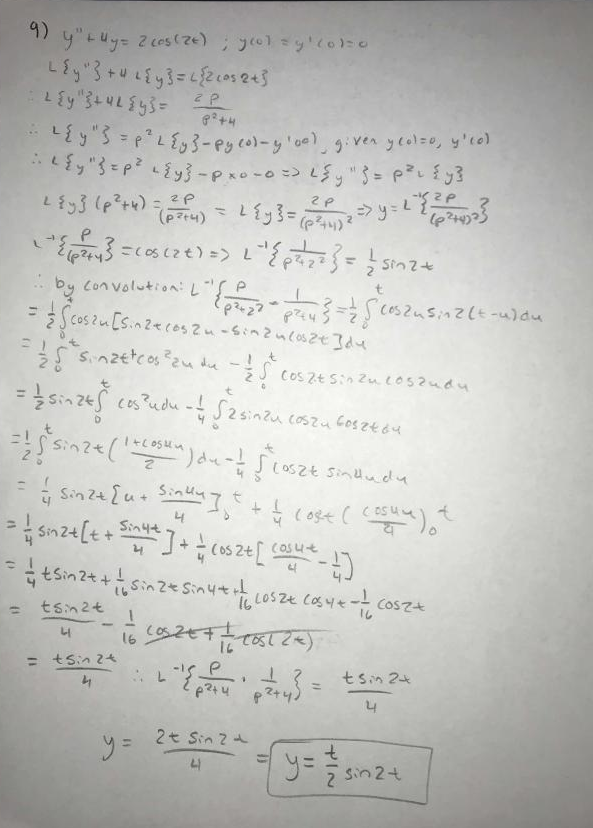 9) y"+4y= 2cos(2t) ; y(0) = y'(0)=0
L{y"}+4 L{y}=L{2cos2t}
∴ L{y"}+4L{y}= 2P/P²+4
∴ L{y"} = P² L{y}-Py(0)-y'(0), given y(0)=0, y'(0)
∴ L{y"}=P² L{y}-P×0-0 => L{y"}= P² L{y}
L{y} (P²+4)= 2P/(P²+4) = L{y}= 2P/(P²+4)² => y= L⁻¹{2P/(P²+4)²}
L⁻¹{P/(P²+4)}=cos(2t) => L⁻¹{1/P²+2²}= 1/2 sin2t
∴ by convolution: L⁻¹{P/P²+2² · 1/P²+4}= 1/2 ∫₀ᵗ cos2u sin2(t-u)du
= 1/2 ∫₀ᵗ cos2u[sin2t cos2u - sin2u cos2t]du
= 1/2 ∫₀ᵗ sin2t cos²2u du - 1/2 ∫₀ᵗ cos2t sin2u cos2u du
= 1/2 sin2t ∫₀ᵗ cos²u du - 1/4 ∫₀ᵗ 2sin2u cos2u cos2t du
= 1/2 ∫₀ᵗ sin2t (1+cos4u/2) du - 1/4 ∫₀ᵗ cos2t sin4u du
= 1/4 sin2t [u + sin4u/4]₀ᵗ + 1/4 cos2t (cos4u/4)₀ᵗ
= 1/4 sin2t[t + sin4t/4] + 1/4 cos2t [cos4t/4 - 1/4]
= 1/4 t sin2t + 1/16 sin2t sin4t + 1/16 cos2t cos4t - 1/16 cos2t
= tsin2t/4 - 1/16 cos2t + 1/16 cos(2t)
= tsin2t/4 ∴ L⁻¹{P/P²+4 · 1/P²+4} = tsin2t/4
y = 2t sin2t/4 = y = t/2 sin2t